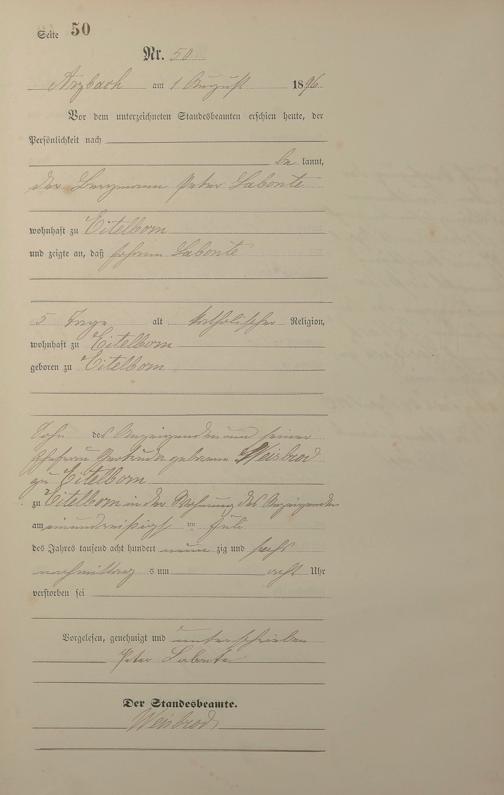 Seite 50
Nr. 50
Arzbach am 1 August 1896
Vor dem unterzeichneten Standesbeamten erschien heute, der
Persönlichkeit nach
be kannt,
der Bergmann Peter Labonte
wohnhaft zu Eitelborn
und zeigte an, daß Johann Labonte
5 Tage alt katholischer Religion,
wohnhaft zu Eitelborn
geboren zu Eitelborn
Sohn des Anzeigenden und seiner
Ehefrau Gertrude geborene Weisbrod
zu Eitelborn
zu Eitelborn in der Wohnung des Anzeigenden
am einunddreißigst en Juli
des Jahres tausend acht hundert neun zig und sechs
nachmittag s um acht Uhr
verstorben sei
Vorgelesen, genehmigt und unterschrieben
Peter Labonte
Der Standesbeamte.
Weisbrod